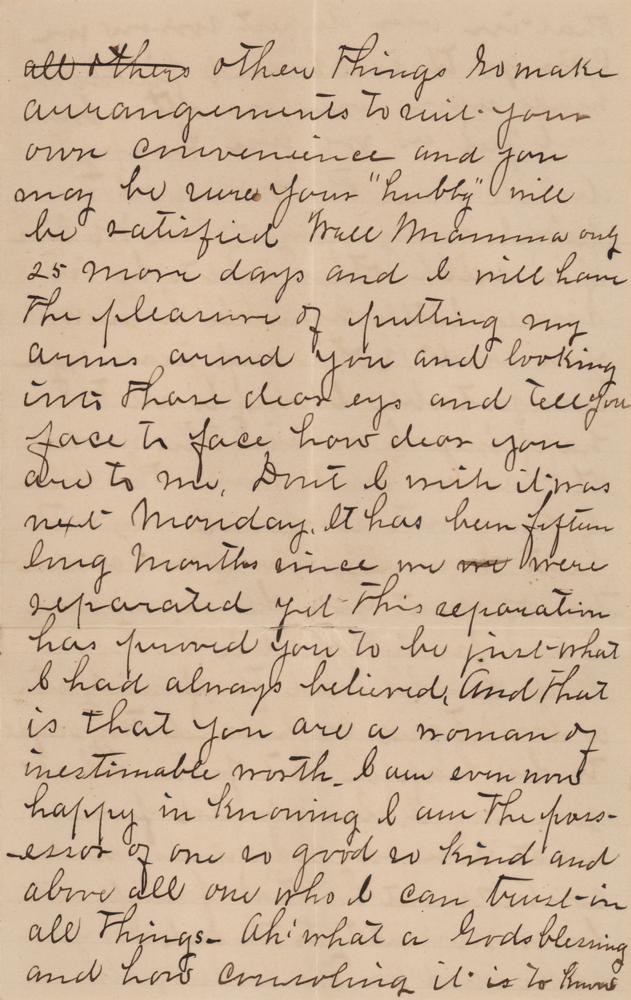 ~~all others~~ other things so make
arrangements to suit your
own convenience and you
may be sure your "hubby" will
be satisfied Well Mamma only
25 more days and I will have
the pleasure of putting my
arms arund you and looking
into those dear eys and tell you
face to face how dear you
are to me. Dont I wish it was
next Monday. It has been fifteen
long months since we ~~we~~ were
separated yet this separation
has proved you to be just what
I had always believed, And that
is that you are a woman of
inestimable worth - I am even now
happy in knowing I am the poss-
-essor of one so good so kind and
above all one who I can trust in
all things - Ah! what a Gods blessing
and how consoling it is to know